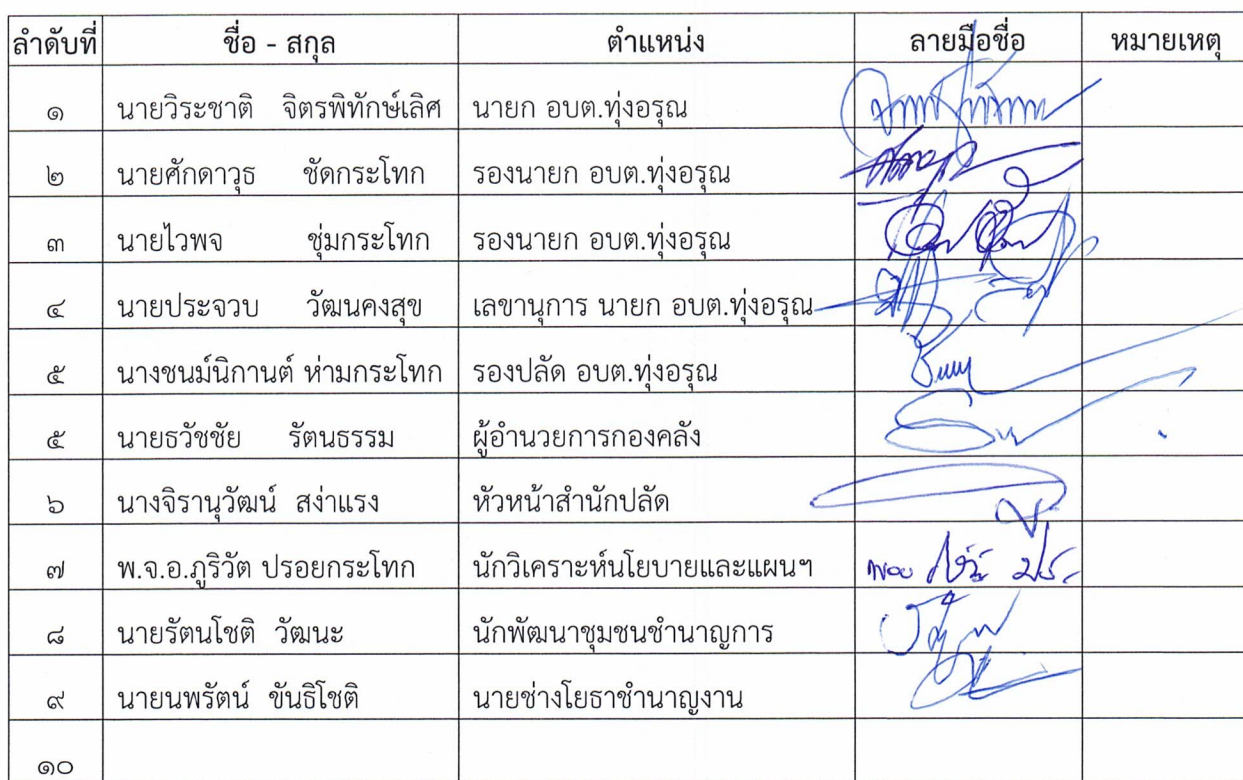 ลำดับที่ ชื่อ - สกุล ตำแหน่ง ลายมือชื่อ หมายเหตุ
๑ นายวิระชาติ จิตรพิทักษ์เลิศ นายก อบต.ทุ่งอรุณ
๒ นายศักดาวุธ ชัดกระโทก รองนายก อบต.ทุ่งอรุณ
๓ นายไวพจ ชุ่มกระโทก รองนายก อบต.ทุ่งอรุณ
๔ นายประจวบ วัฒนคงสุข เลขานุการ นายก อบต.ทุ่งอรุณ
๕ นางชนม์นิกานต์ ห่ามกระโทก รองปลัด อบต.ทุ่งอรุณ
๕ นายธวัชชัย รัตนธรรม ผู้อำนวยการกองคลัง
๖ นางจิรานุวัฒน์ สง่าแรง หัวหน้าสำนักปลัด
๗ พ.จ.อ.ภูริวัต ปรอยกระโทก นักวิเคราะห์นโยบายและแผนฯ
๘ นายรัตนโชติ วัฒนะ นักพัฒนาชุมชนชำนาญการ
๙ นายนพรัตน์ ขันธิโชติ นายช่างโยธาชำนาญงาน
๑๐